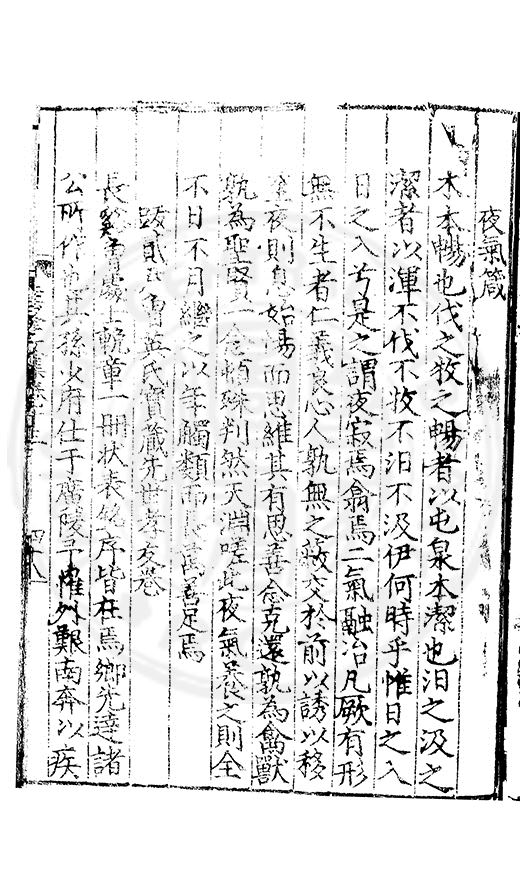 夜氣箴
木本暢也伐之牧之暢者以屯泉本潔也汩之汲之
潔者以渾不伐不牧不汩不汲伊何時乎惟日之入
日之入兮是之謂夜寂焉翕焉二氣融冶凡厥有形
無不生者仁義良心人孰無之蔽交於前以誘以移
夜則息始焉而思維其有思善念克還孰為禽獸
孰為聖賢一念頓殊判然天淵嗟此夜氣養之則全
不日不月繼之以年觸類而長萬善足焉
跋貳氏魯英氏寶藏先世孝友卷
長谿魯處士軌章一冊狀表銘序皆在焉鄉先達諸
公所作也其孫少府仕于廣陵子惟列艱南奔以疾
四十八